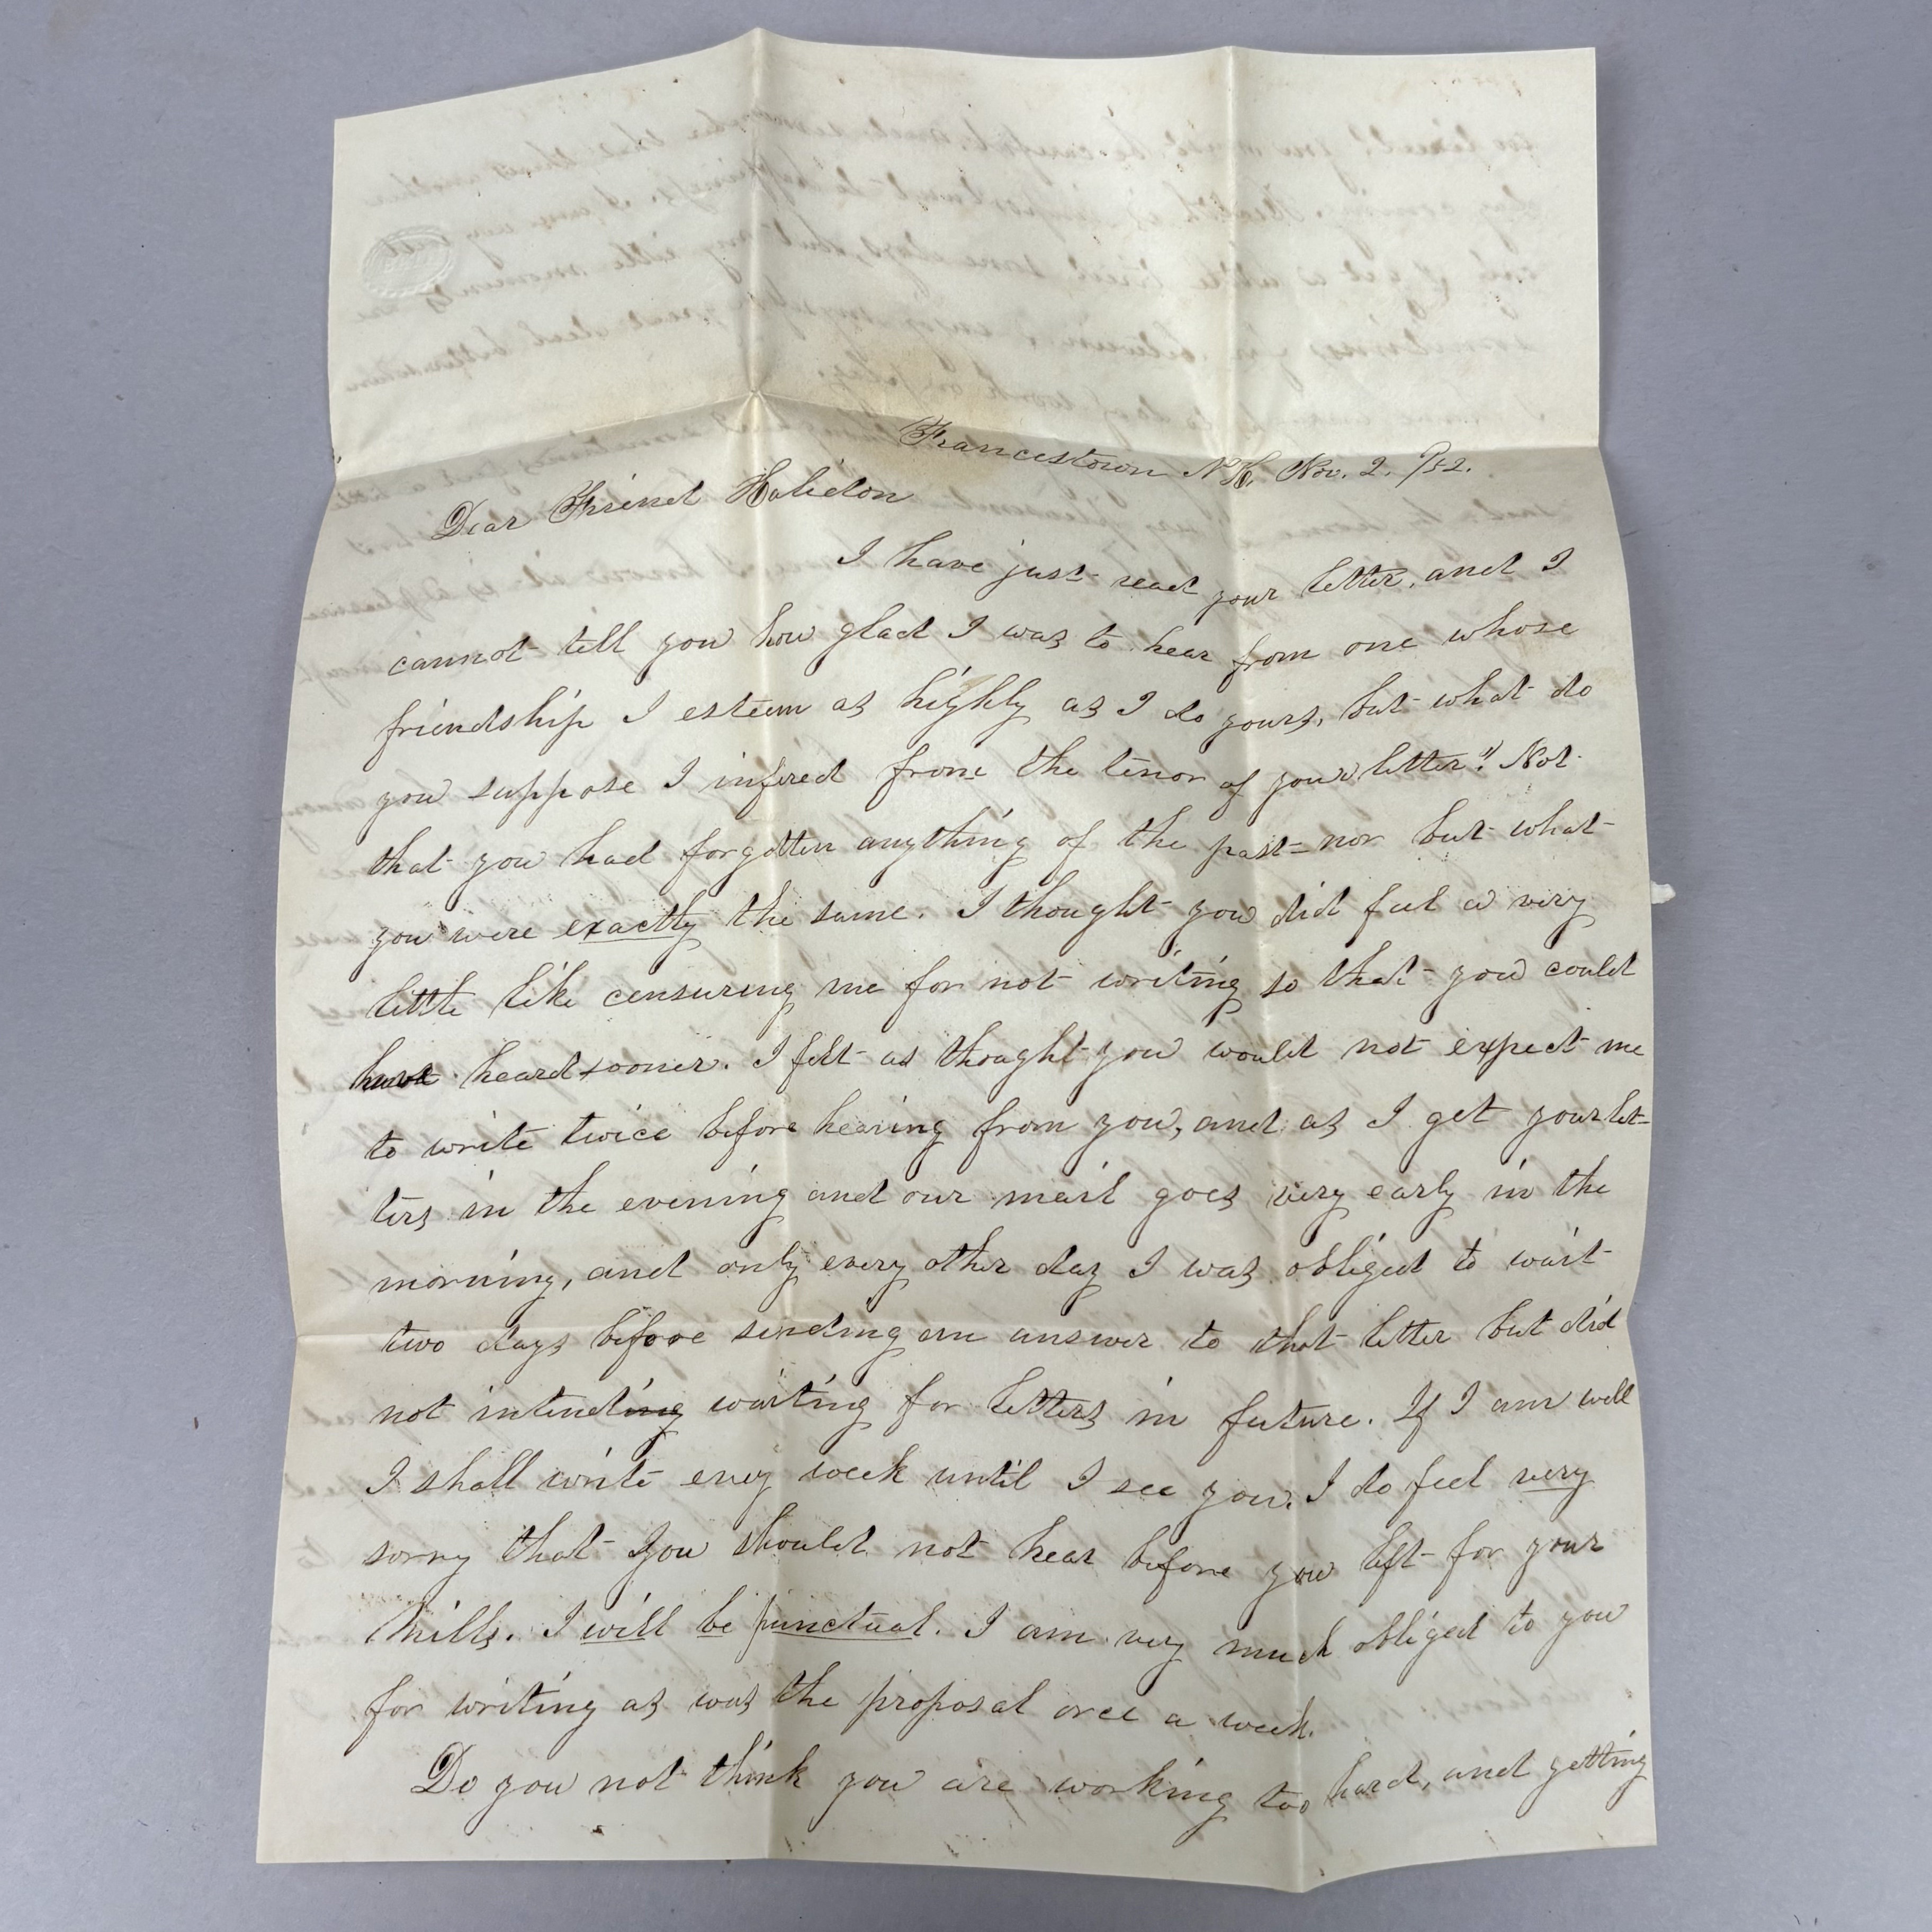 Francestown N.H. Nov. 2. /52.
Dear Friend Haleidon
I have just read your letter, and I
cannot tell you how glad I was to hear from one whose
friendship I esteem as highly as I do yours, but what do
you suppose I infered from the tenor of your letter? Not
that you had forgotten anything of the past = nor but what
you were exactly the same. I thought you did feel a very
little like censuring me for not writing so that you could
have heard sooner. I felt as thought you would not expect me
to write twice before hearing from you, and as I get your let-
ters in the evening and our mail goes very early in the
morning, and only every other day I was obliged to wait
two days before sending an answer to that letter but did
not intending waiting for letters in future. If I am well
I shall write evey week until I see you. I do feel very
sorry that you should not hear before you left for your
Mills. I will be punctual. I am very much obliged to you
for writing as was the proposal once a week.
Do you not think you are working too hard, and getting